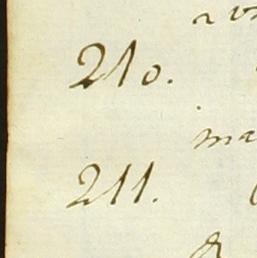 210.
ma
211.